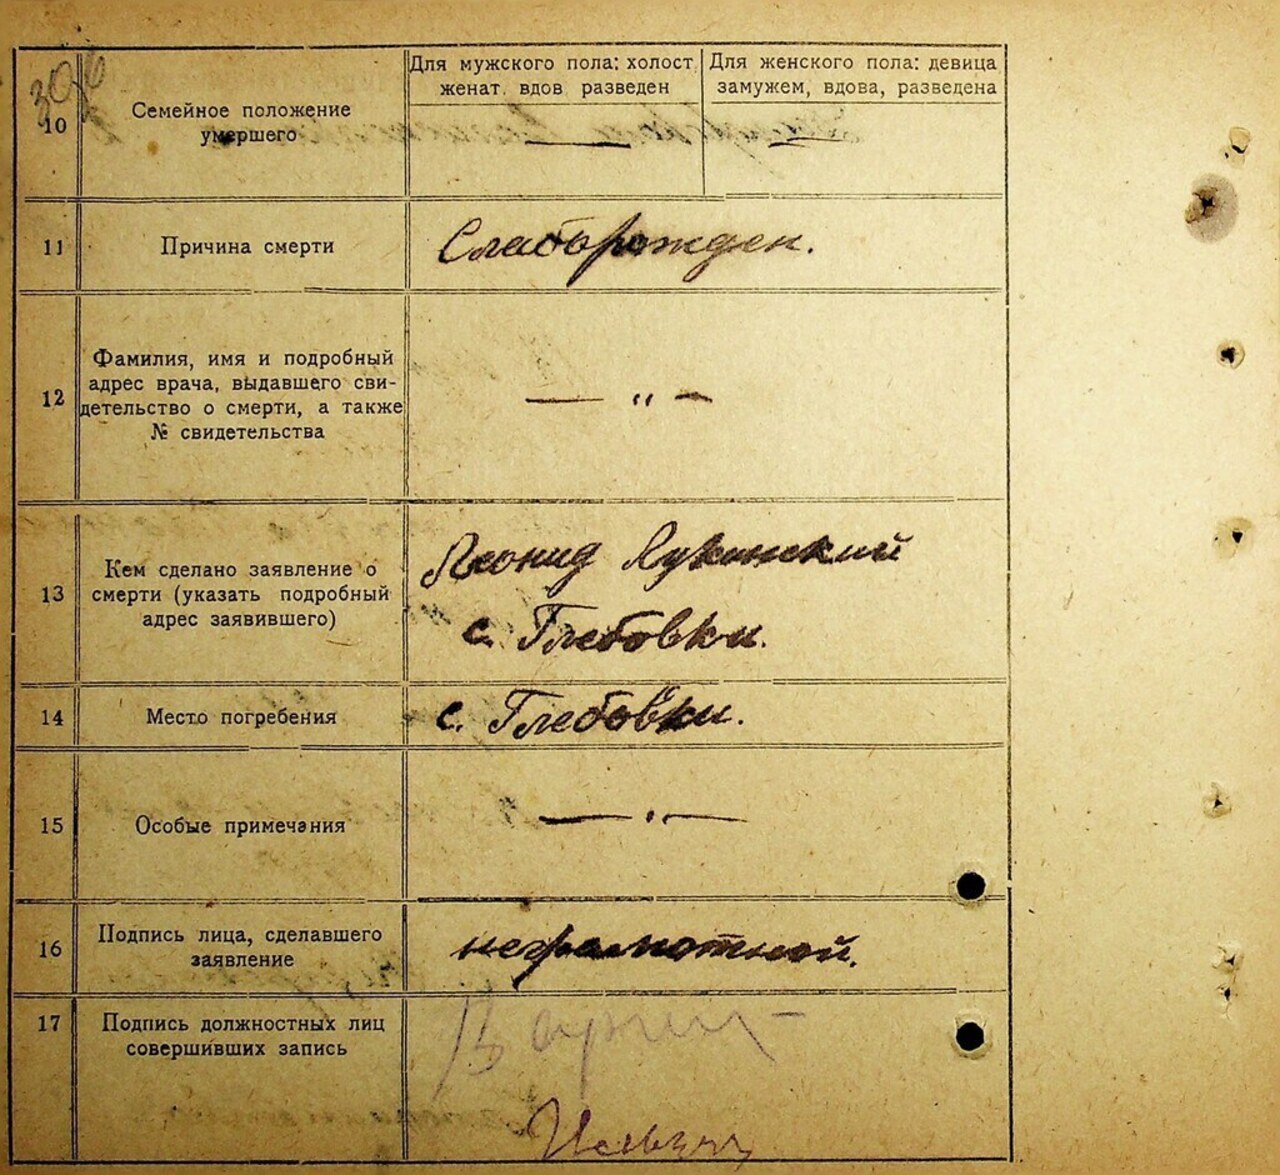 10
Семейное положение
умершего
Для мужского пола: холост
женат. вдов разведен
Для женского пола: девица
замужем, вдова, разведена
11
Причина смерти
Слаборожден.
12
Фамилия, имя и подробный
адрес врача, выдавшего сви-
детельство о смерти, а также
№ свидетельства
— " —
13
Кем сделано заявление о
смерти (указать подробный
адрес заявившего)
Леонид Лукинский
с. Глебовки.
14
Место погребения
с. Глебовки.
15
Особые примечания
— " —
16
Подпись лица, сделавшего
заявление
неграмотной.
17
Подпись должностных лиц
совершивших запись